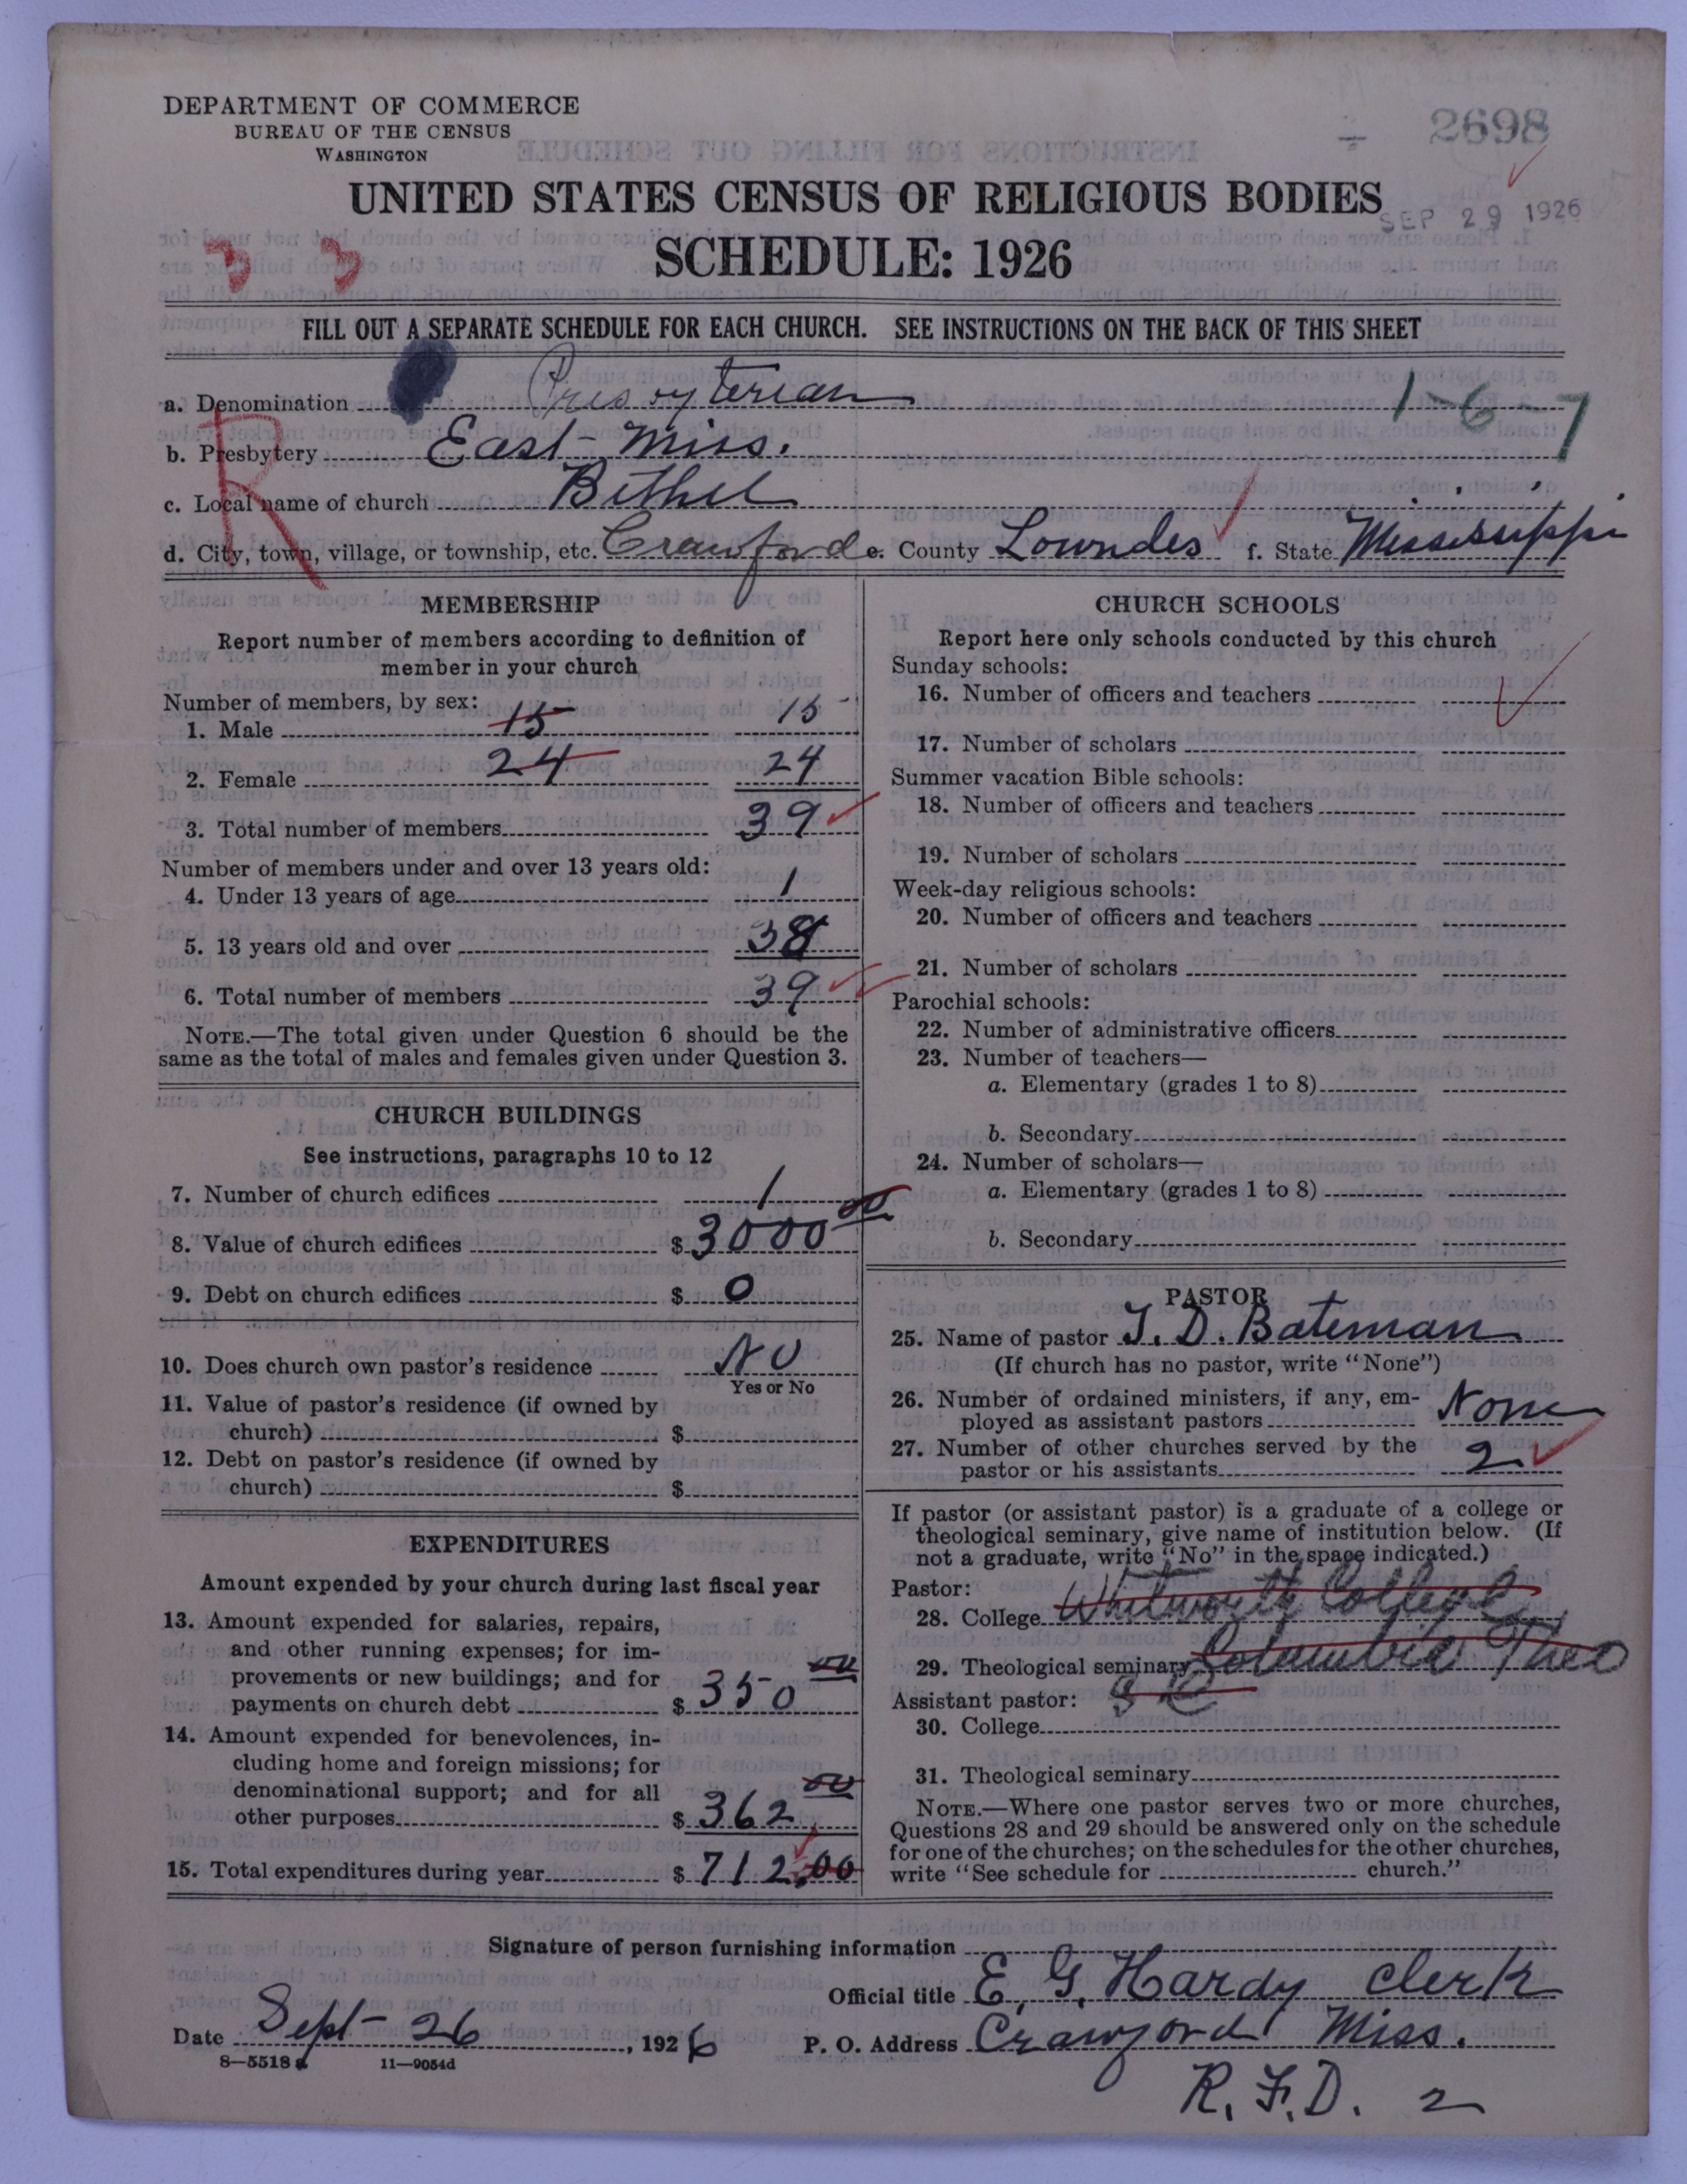 DEPARTMENT OF COMMERCE
BUREAU OF THE CENSUS
WASHINGTON
2698
UNITED STATES CENSUS OF RELIGIOUS BODIES
SEP 29 1926
SCHEDULE: 1926
3 3
FILL OUT A SEPARATE SCHEDULE FOR EACH CHURCH. SEE INSTRUCTIONS ON THE BACK OF THIS SHEET
a. Denomination Presbyterian 1-6-7
b. Presbytery East-Miss.
R
c. Local name of church Bethel
d. City, town, village, or township, etc. Crawford e. County Lowndes f. State Mississippi
MEMBERSHIP
Report number of members according to definition of
member in your church
Number of members, by sex:
1. Male 15 15
2. Female 24 24
3. Total number of members 39
Number of members under and over 13 years old:
4. Under 13 years of age 1
5. 13 years old and over 38
6. Total number of members 39
NOTE.—The total given under Question 6 should be the
same as the total of males and females given under Question 3.
CHURCH BUILDINGS
See instructions, paragraphs 10 to 12
7. Number of church edifices 1
8. Value of church edifices $ 3000 00
9. Debt on church edifices $ 0
10. Does church own pastor's residence No
Yes or No
11. Value of pastor's residence (if owned by
church) $
12. Debt on pastor's residence (if owned by
church) $
EXPENDITURES
Amount expended by your church during last fiscal year
13. Amount expended for salaries, repairs,
and other running expenses; for im-
provements or new buildings; and for
payments on church debt $ 350 00
14. Amount expended for benevolences, in-
cluding home and foreign missions; for
denominational support; and for all
other purposes $ 362 00
15. Total expenditures during year $ 712.00
CHURCH SCHOOLS
Report here only schools conducted by this church
Sunday schools:
16. Number of officers and teachers
17. Number of scholars
Summer vacation Bible schools:
18. Number of officers and teachers
19. Number of scholars
Week-day religious schools:
20. Number of officers and teachers
21. Number of scholars
Parochial schools:
22. Number of administrative officers
23. Number of teachers—
a. Elementary (grades 1 to 8)
b. Secondary
24. Number of scholars—
a. Elementary (grades 1 to 8)
b. Secondary
PASTOR
25. Name of pastor T. D. Bateman
(If church has no pastor, write "None")
26. Number of ordained ministers, if any, em-
ployed as assistant pastors None
27. Number of other churches served by the
pastor or his assistants 2
If pastor (or assistant pastor) is a graduate of a college or
theological seminary, give name of institution below. (If
not a graduate, write "No" in the space indicated.)
Pastor:
28. College Whitworth College
29. Theological seminary Columbia Theo
Assistant pastor: S C
30. College
31. Theological seminary
NOTE.—Where one pastor serves two or more churches,
Questions 28 and 29 should be answered only on the schedule
for one of the churches; on the schedules for the other churches,
write "See schedule for church."
Signature of person furnishing information
Official title E. G. Hardy Clerk
Date Sept-26, 1926 P. O. Address Crawford Miss.
8—5518a 11—9054d
R. F. D. 2